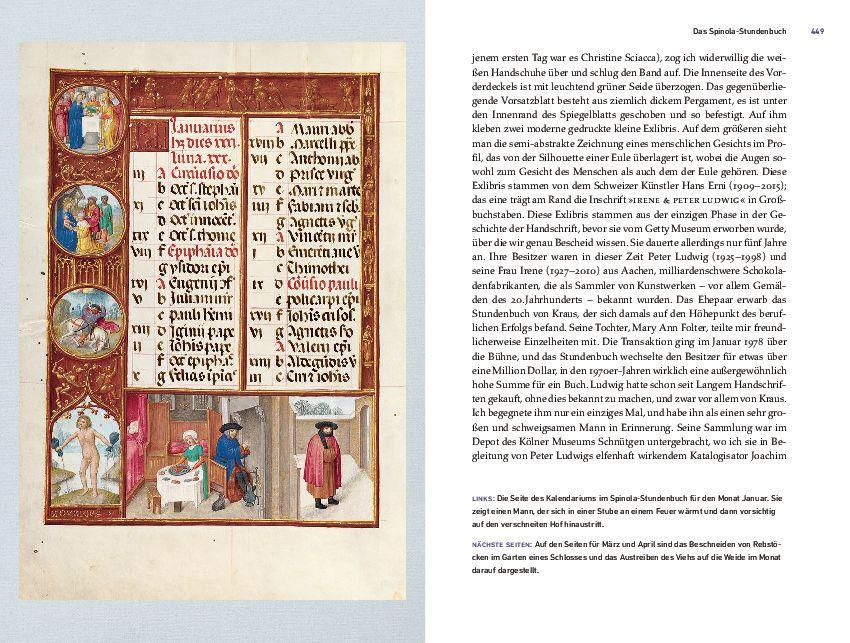 Januarius
luna. xxx.
iij A
b Oct s. stephāi
xi c Oct sci iohīs
d Oct innocēt.
e Oct s. thome
viij f Epiphāia dō
g ysidori epī
xvi A Eugenij
v b Juliani
c pauli
xiij d Iginij pape
ij e iohīs pape
f
x g
A Mauri abb
b Marcelli
vij c Anthonij
d prisce
xv e
iiij f Fabiani
g Agnetis
xij A
i b
c Thimothei
ix d pauli
e policarpi epī
xvij f iohīs
vi g Agnetis
A Valerij epī
b
iij c
Das Spinola-Stundenbuch 449
jenem ersten Tag war es Christine Sciacca), zog ich widerwillig die wei-
ßen Handschuhe über und schlug den Band auf. Die Innenseite des Vor-
derdeckels ist mit leuchtend grüner Seide überzogen. Das gegenüberlie-
gende Vorsatzblatt besteht aus ziemlich dickem Pergament, es ist unter
den Innenrand des Spiegelblatts geschoben und so befestigt. Auf ihm
kleben zwei moderne gedruckte kleine Exlibris. Auf dem größeren sieht
man die semi-abstrakte Zeichnung eines menschlichen Gesichts im Pro-
fil, das von der Silhouette einer Eule überlagert ist, wobei die Augen so-
wohl zum Gesicht des Menschen als auch dem der Eule gehören. Diese
Exlibris stammen von dem Schweizer Künstler Hans Erni (1909–2015);
das eine trägt am Rand die Inschrift »IRENE & PETER LUDWIG« in Groß-
buchstaben. Diese Exlibris stammen aus der einzigen Phase in der Ge-
schichte der Handschrift, bevor sie vom Getty Museum erworben wurde,
über die wir genau Bescheid wissen. Sie dauerte allerdings nur fünf Jahre
an. Ihre Besitzer waren in dieser Zeit Peter Ludwig (1925–1998) und
seine Frau Irene (1927–2010) aus Aachen, milliardenschwere Schokola-
denfabrikanten, die als Sammler von Kunstwerken – vor allem Gemäl-
den des 20. Jahrhunderts – bekannt wurden. Das Ehepaar erwarb das
Stundenbuch von Kraus, der sich damals auf den Höhepunkt des beruf-
lichen Erfolgs befand. Seine Tochter, Mary Ann Folter, teilte mir freund-
licherweise Einzelheiten mit. Die Transaktion ging im Januar 1978 über
die Bühne, und das Stundenbuch wechselte den Besitzer für etwas über
eine Million Dollar, in den 1970er-Jahren wirklich eine außergewöhnlich
hohe Summe für ein Buch. Ludwig hatte schon seit Langem Handschrif-
ten gekauft, ohne dies bekannt zu machen, und zwar vor allem von Kraus.
Ich begegnete ihm nur ein einziges Mal, und habe ihn als einen sehr gro-
ßen und schweigsamen Mann in Erinnerung. Seine Sammlung war im
Depot des Kölner Museums Schnütgen untergebracht, wo ich sie in Be-
gleitung von Peter Ludwigs elfenhaft wirkendem Katalogisator Joachim
LINKS: Die Seite des Kalendariums im Spinola-Stundenbuch für den Monat Januar. Sie
zeigt einen Mann, der sich in einer Stube an einem Feuer wärmt und dann vorsichtig
auf den verschneiten Hof hinaustritt.
NÄCHSTE SEITEN: Auf den Seiten für März und April sind das Beschneiden von Rebstö-
cken im Garten eines Schlosses und das Austreiben des Viehs auf die Weide im Monat
darauf dargestellt.